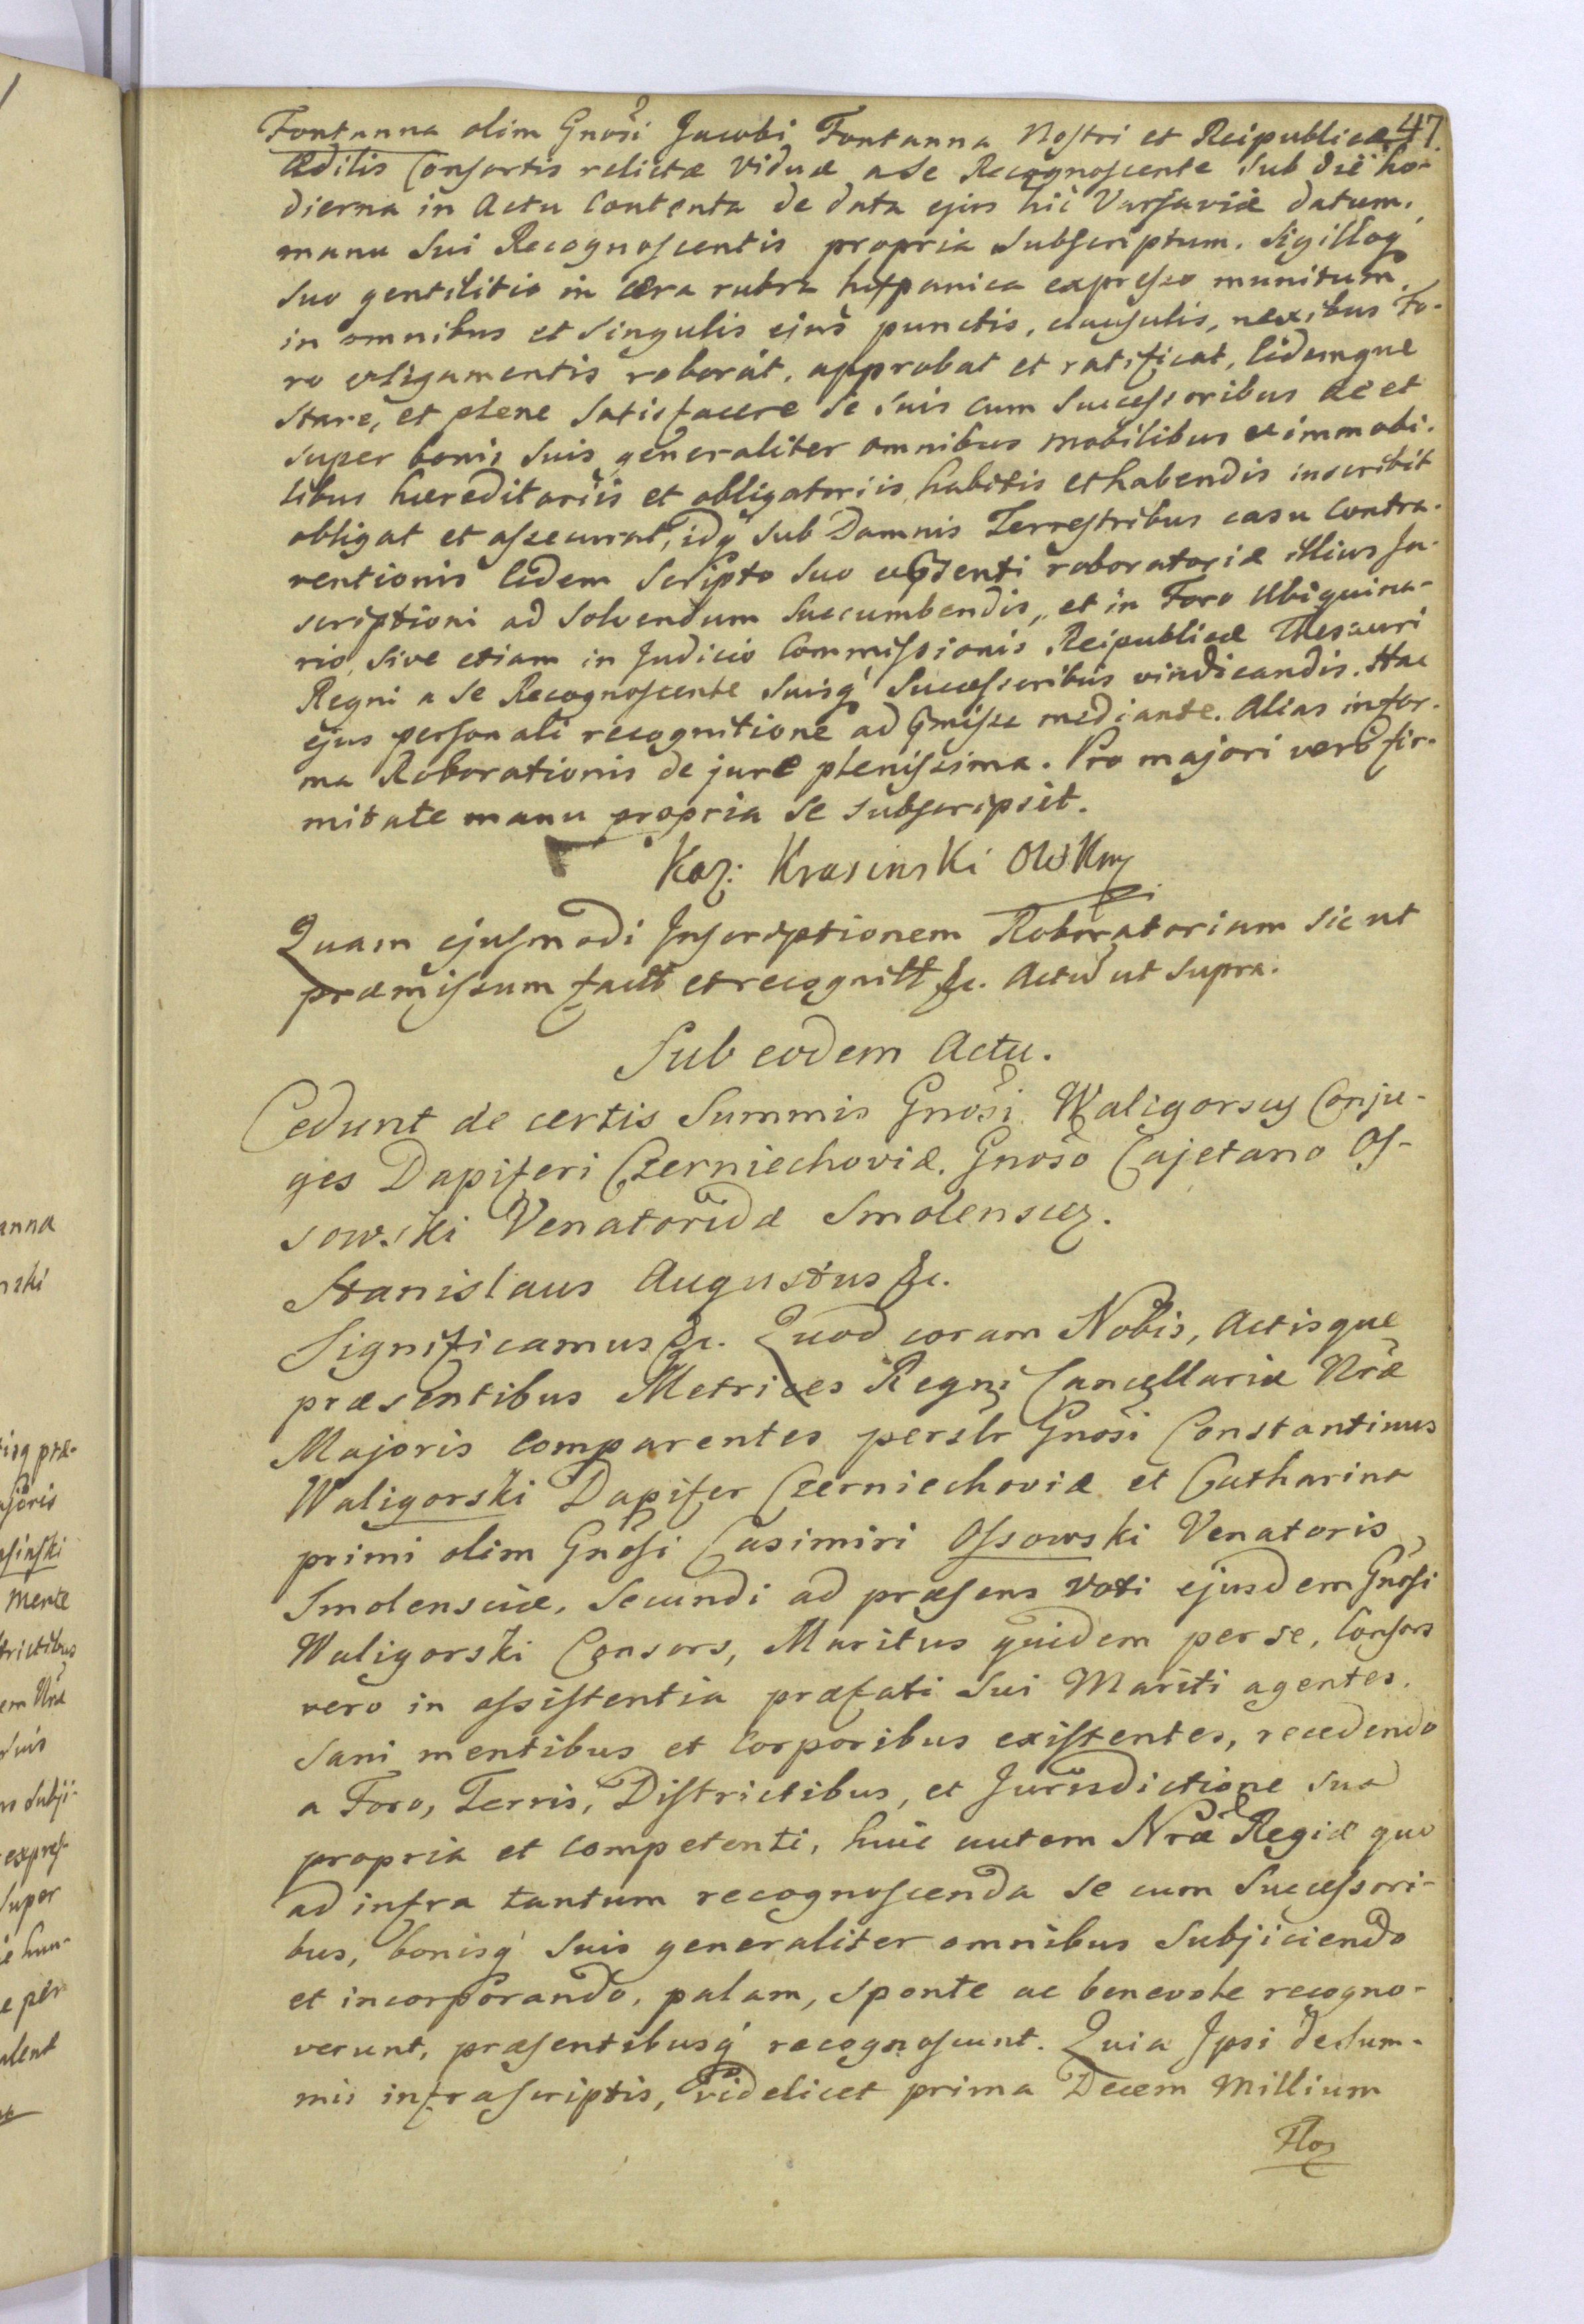 47.
Fontanna olim Gnosi Jacobi Fontanna Nostri et Reipublicæ
Ædilis Consortis relictæ Viduæ a se Recognoscente sub die ho-
dierna in Actu Contenta de data ejus hic Varsaviæ datum,
manu sui Recognoscentis propria subscriptum. Sigilloq́
suo gentilitio in cera rubra hispanica expresso munitum,
in omnibus et singulis ejus punctis, clausulis, nexibus Fo-
ro obligamentis roborat, approbat et ratificat, Eidemque
stare, et plene satisfacere se suis cum Successoribus ac et
super bonis suis generaliter omnibus mobilibus et immobi-
libus hæreditariis et obligatoriis, habitis et habendis inscribit
obligat et assecurat, idq́ sub Damnis Terrestribus casu Contra-
ventionis Eidem Scripto suo roboratoriæ illius In-
scriptioni ad solvendum succumbendis, et in Foro Ubiquina-
rio, sive etiam in Judicio Commissionis Reipublicæ Thesauri
Regni a se Recognoscente suisq́ Successoribus vindicandis. Hac
ejus personali recognitione ad p̃missa mediante. Alias in for-
ma Roborationis de jure plenissima. Pro majori vero fir-
mitate manu propria se subscripsit.
Kaz: Krasinski OWKny
Quam ejusmodi Inscriptionem Roboratoriam sic ut
præmissum factt et recognitt &c. Actu ut supra.
Sub eodem Actu.
Cedunt de certis Summis Gnosi Waligorscy Conju-
ges Dapiferi Czerniechoviæ. Gnoso Cajetano Os-
sowski Venatoridæ Smolenscen.
Stanislaus Augustus &c.
Significamus &c. Quod coram Nobis, Actisque
præsentibus Metrices Regni Cancellariæ Nræ
Majoris comparentes perslr Gnosi Constantinus
Waligorski Dapifer Czerniechoviæ et Catharina
primi olim Gnosi Casimiri Ossowski Venatoris
Smolensciæ, Secundi ad præsens Voti ejusdem Gnosi
Waligorski Consors, Maritus quidem per se, Consors
vero in assistentia præfati sui Mariti agentes.
Sani mentibus et Corporibus existentes, recedendo
a Foro, Terris, Districtibus, et Jurisdictione sua
propria et competenti, huic autem Nræ Regiæ quo
ad infra tantum recognoscenda se cum Successori-
bus, bonisq́ suis generaliter omnibus subjiciendo
et incorporando, palam, sponte ac benevole recogno-
verunt, præsentibusq́ recognoscunt. Quia Ipsi de sum-
mis infrascriptis, videlicet prima Decem Millium
Flor